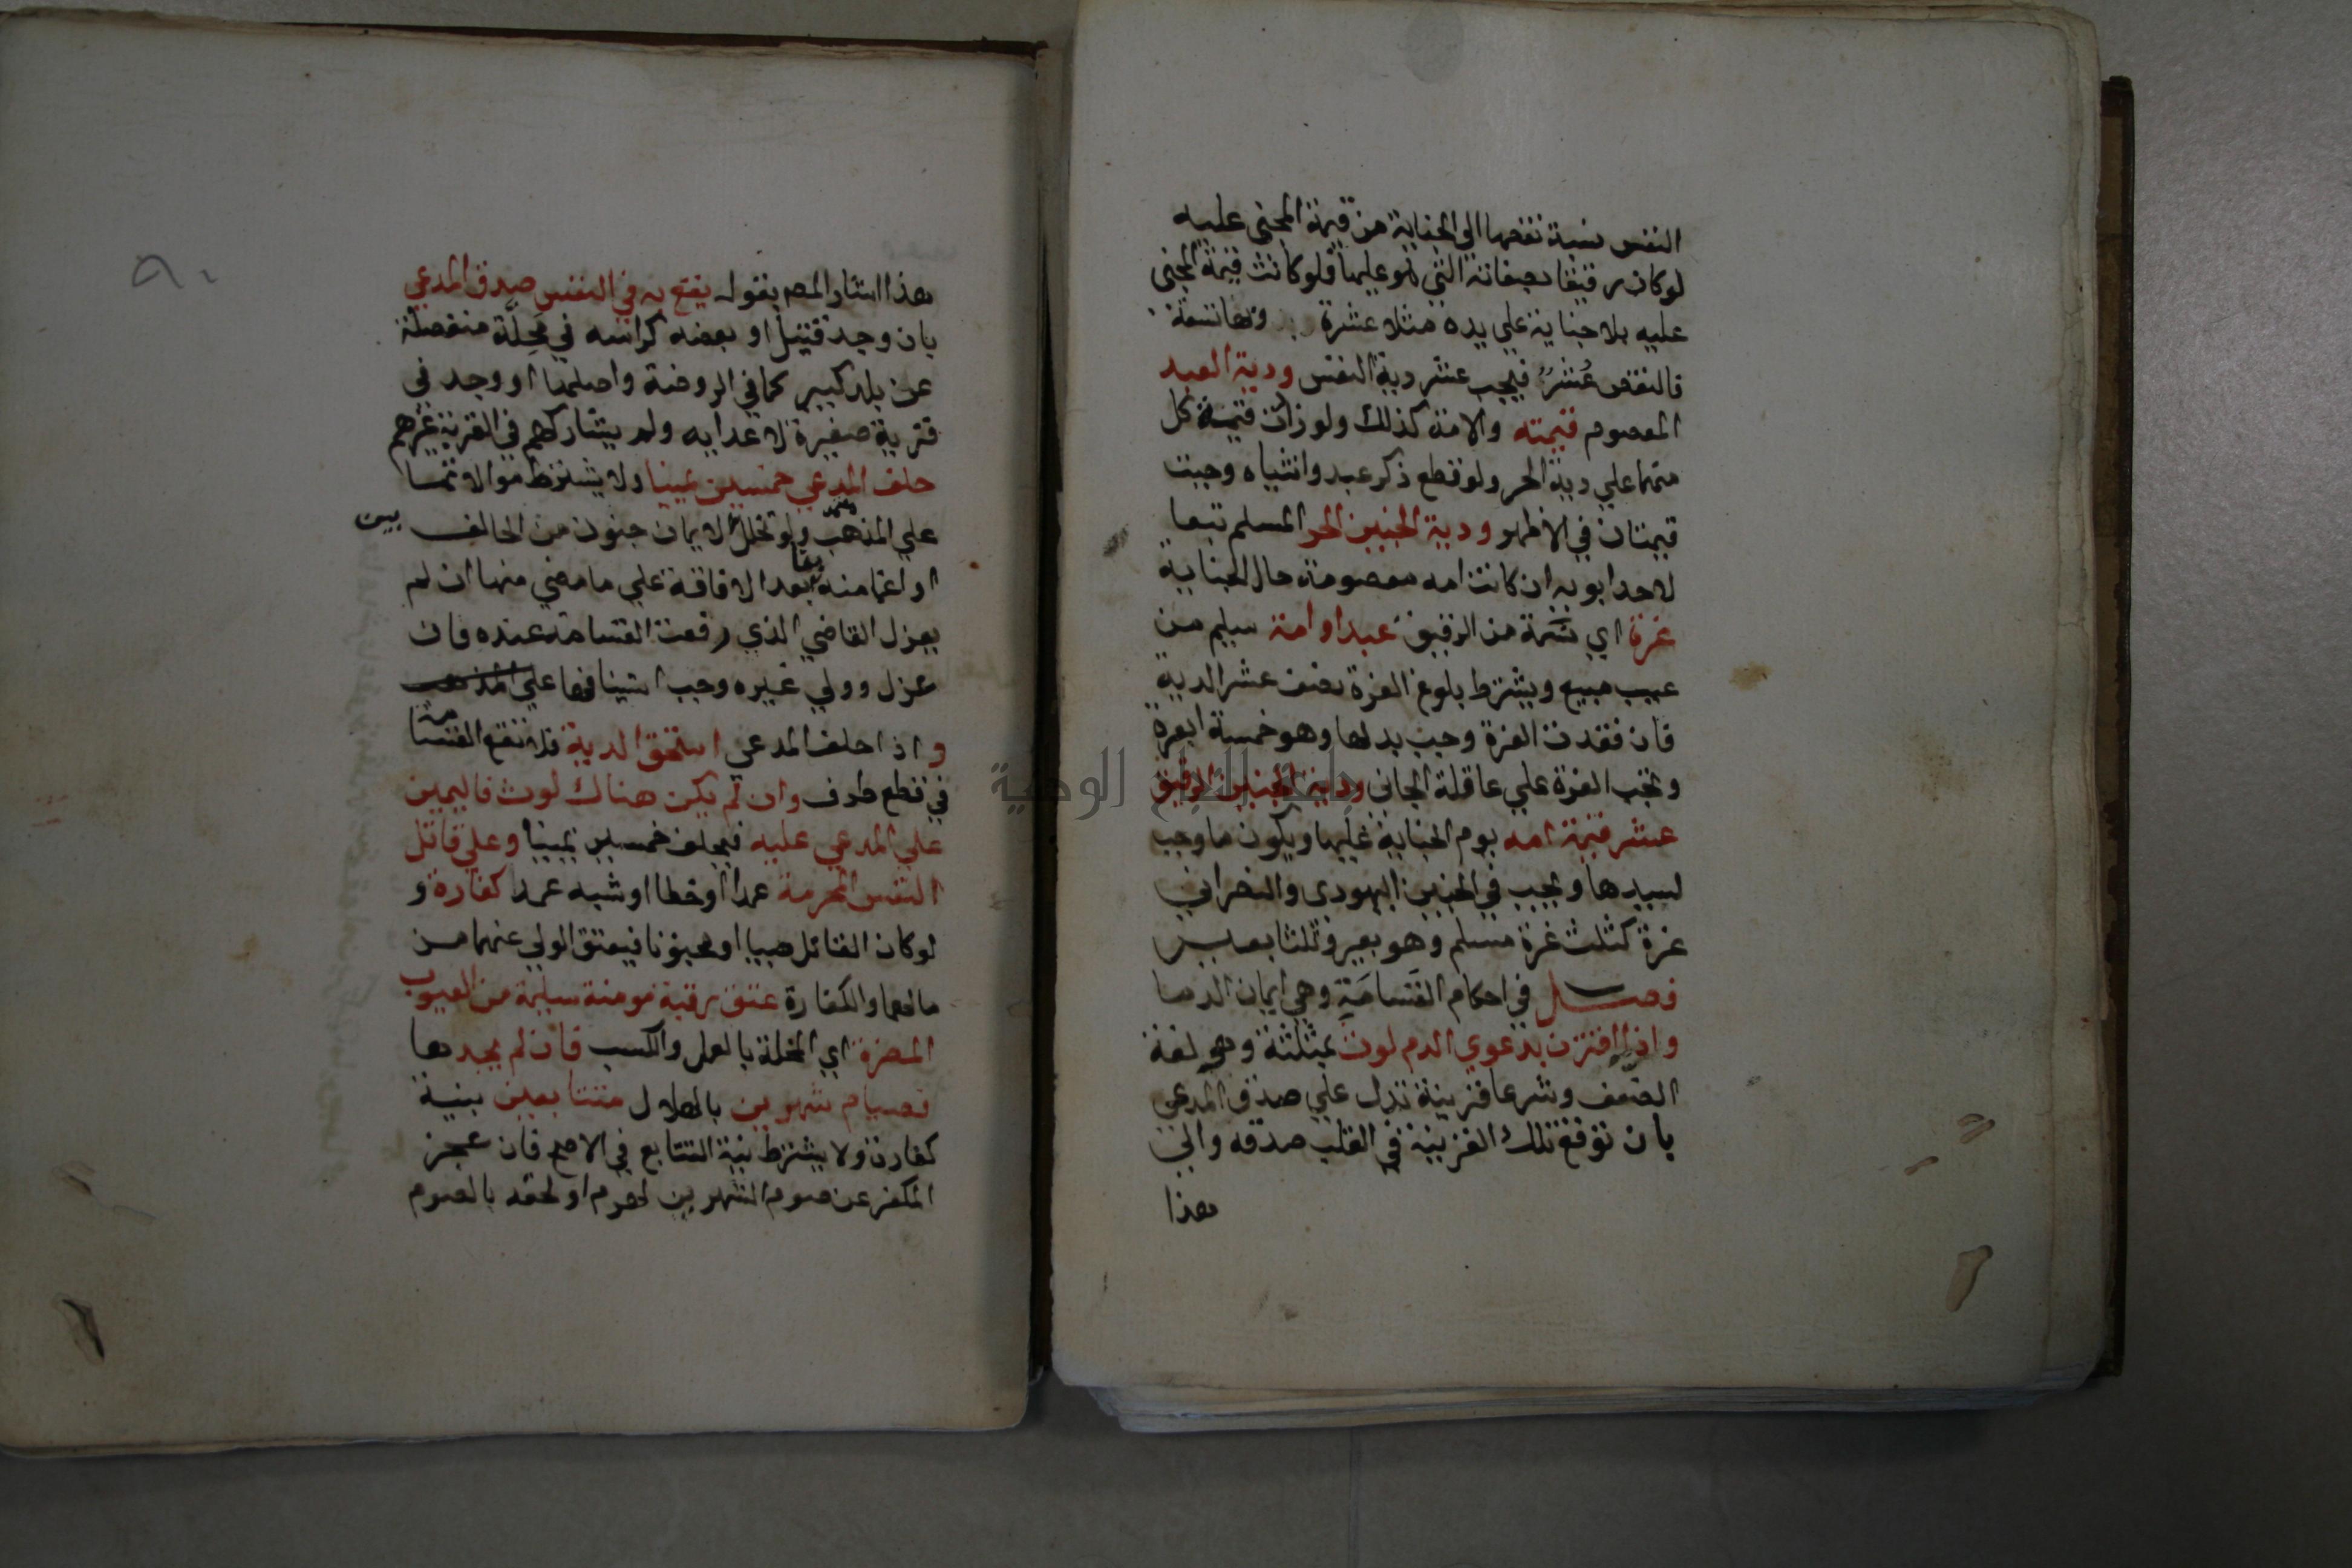 النفس نسبة نقصها الي الجناية من قيمة المجني عليه
لوكان رقيقا بصفاته التي هو عليها فلو كانت قيمة المجني
عليه بلا جناية علي يده مثلا عشرة وبها تسعة
فالنقص عُشرٌ فيجب عشر دية النفس ودية العبد
المعصوم قيمته والامة كذلك ولو زادت قيمة كل
منهما علي دية الحر ولو قطع ذكر عبد وانثياه وجبت
قيمتان في الاظهر ودية الجنين الحر المسلم تبعا
لاحد ابويه ان كانت امه معصومة حال الجناية
غرة اي نَسَمة من الرقيق عبد او امة سليم من
عيب مبيع ويشترط بلوغ الغرة نصف عشر الدية
فان فقدت الغرة وجب بدلها وهو خمسة ابعرة
وتجب الغرة علي عاقلة الجاني ودية الجنين الرقيق
عشر قيمة امه يوم الجناية عليها ويكون ما وجب
لسيدها ويجب في الجنين اليهودي والنصراني
غرة كثلث غرة مسلم وهو بعير وثلثا بعير
فصل في احكام القَسَامَةِ وهي ايمان الدما
واذا اقترن بدعوي الدم لوث بمثلثة وهو لغة
الضعف وشرعا قرينة تدل علي صدق المدعي
بان توقع تلك القرينة في القلب صدقه والي
هذا
٩٠
هذا اشار المص بقوله يقع به في النفس صدق المدعي
بان وجد قتيل او بعضه كراسه في مَحِلَّة منفصلة
عن بلد كبير كما في الروضة واصلها او وجد في
قرية صغيرة لاعدايه ولم يشاركهم في القرية غيرهم
حلف المدعي خمسين يمينا ولا يشترط موالاتها
علي المذهب ولو تخلل الايمان جنون من الحالف
او اغما منه بعد الافاقة علي ما مضي منها ان لم
يعزل القاضي الذي وقعت القسامة عنده فان
عزل وولي غيره وجب استينافها علي المذهب
واذا حلف المدعي استحق الدية فلا تقع القسامة
في قطع طرف وان لم يكن هناك لوث فاليمين
علي المدعي عليه فيحلف خمسين يمينا وعلي قاتل
النفس المحرمة عمدا او خطا او شبه عمد كفارة و
لوكان القاتل صبيا او مجنونا فيعتق الولي عنهما من
مالهما والكفارة عتق رقبة مومنة سليمة من العيوب
المضرة اي المخلة بالعمل والكسب فان لم يجدها
فصيام شهرين بالهلال متتابعين بنية
كفارة ولا يشترط نية التتابع في الاصح فان عجز
المكفر عن صوم الشهرين لهرم او لحقه بالصوم
جامعة النجاح الوطنية